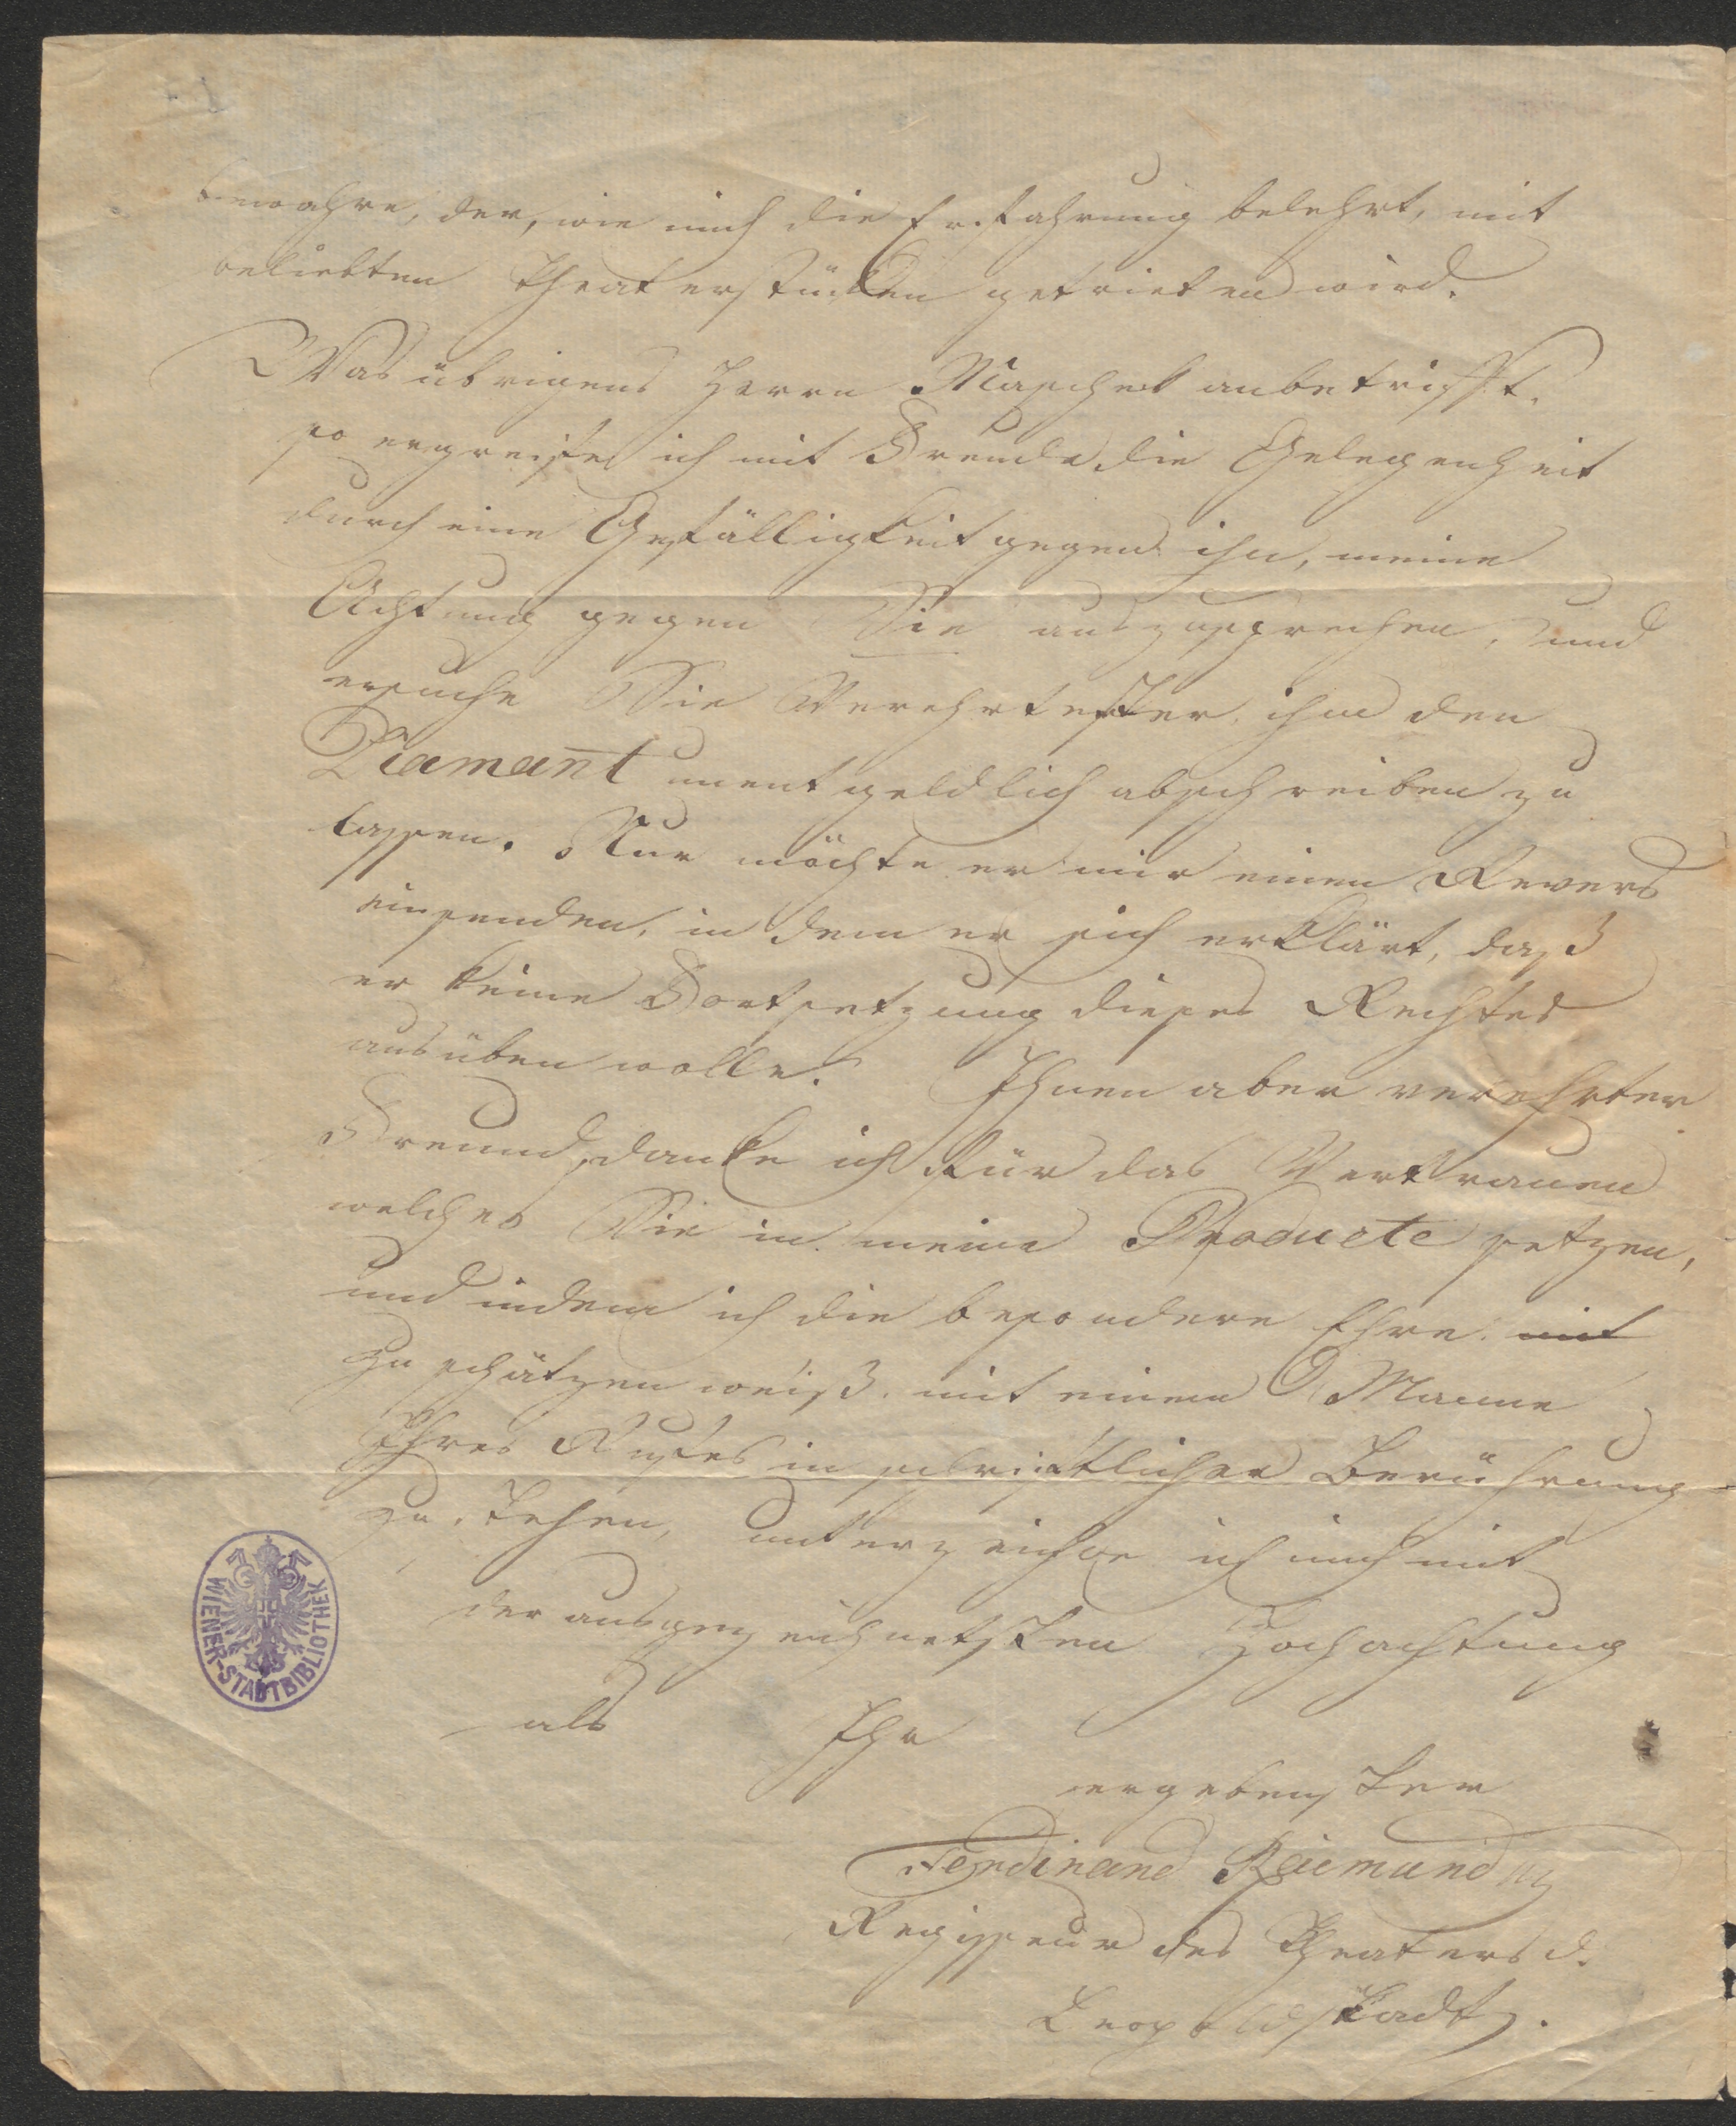 bewahre, der, wie mich die Erfahrung belehrt, mit
beliebten Theaterstücken getrieben wird.
Was übrigens Herrn Maschek anbetrifft,
so ergreife ich mit Freude die Gelegenheit
durch eine Gefälligkeit gegen ihn, meine
Achtung gegen Sie auszusprechen, und
ersuche Sie Verehrtester, ihm den
Diamant unentgeldlich abschreiben zu
lassen. Nur möchte er mir einen Revers
einsenden, in dem er sich erklärt, daß
er keine Fortsetzung dieses Rechtes
ausüben wolle. Ihnen aber verehrter
Freund, danke ich für das Vertrauen
welches Sie in meine Producte setzen,
und indem ich die besondere Ehre mit
zu schätzen weiß, mit einem Manne
Ihres Rufes in schriftlicher Berührung
zu stehen, unterzeichne ich mich mit
der ausgezeichnetsten Hochachtung
als Ihr
ergebenster
Ferdinand Raimund
Regisseur des Theaters d.
Leopoldstadt.
WIENER-STADTBIBLIOTHEK